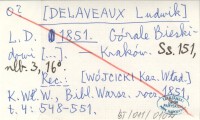 O? [DELAVEAUX Ludwik]
L. D. 1851. Górale Bieski-
dowi [...]. — Kraków. Ss. 151,
nlb. 3, 16°.
Rec.: [WÓJCICKI Kaz. Wład.]
K. Wł. W., Bibl. Warsz. rocz. 1851
t. 4: 548-551.